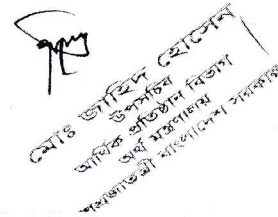 মোঃ জাহিদ হোসেন
উপসচিব
আর্থিক প্রতিষ্ঠান বিভাগ
অর্থ মন্ত্রণালয়
গণপ্রজাতন্ত্রী বাংলাদেশ সরকার